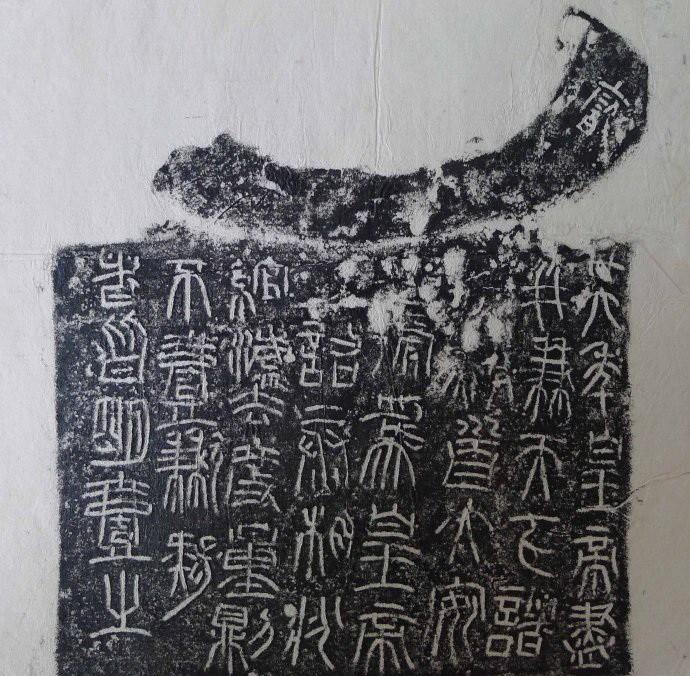 廿六年皇帝盡
并兼天下諸
黔首大安
號為皇帝
詔丞相狀
綰灋度量則
不壹歉疑
者皆明壹之